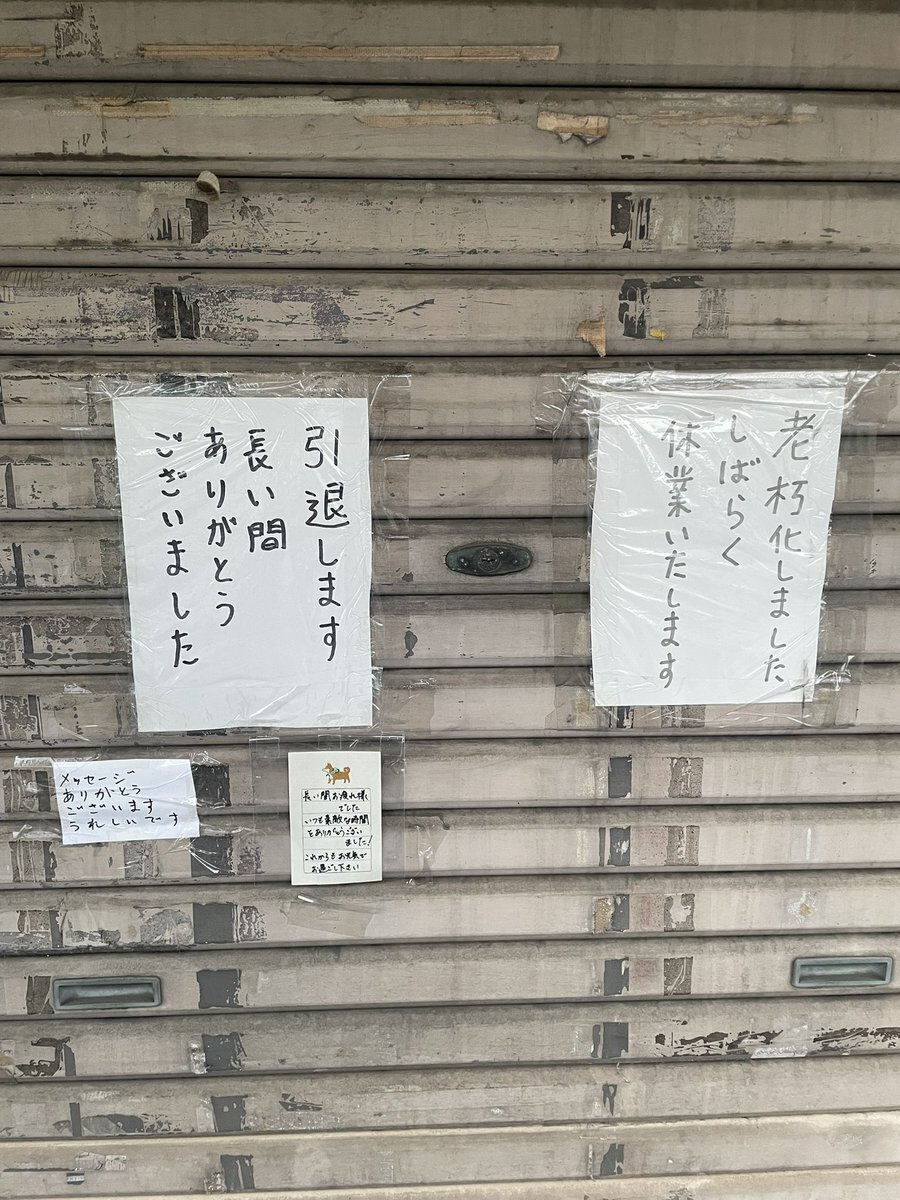 老朽化しました
しばらく
休業いたします
引退します
長い間
ありがとう
ございました
メッセージ
ありがとう
ございます
うれしいです
長い間お疲れ様
でした
いつも素敵な時間
をありがとうござい
ました!
これからもお元気で
お過ごし下さい